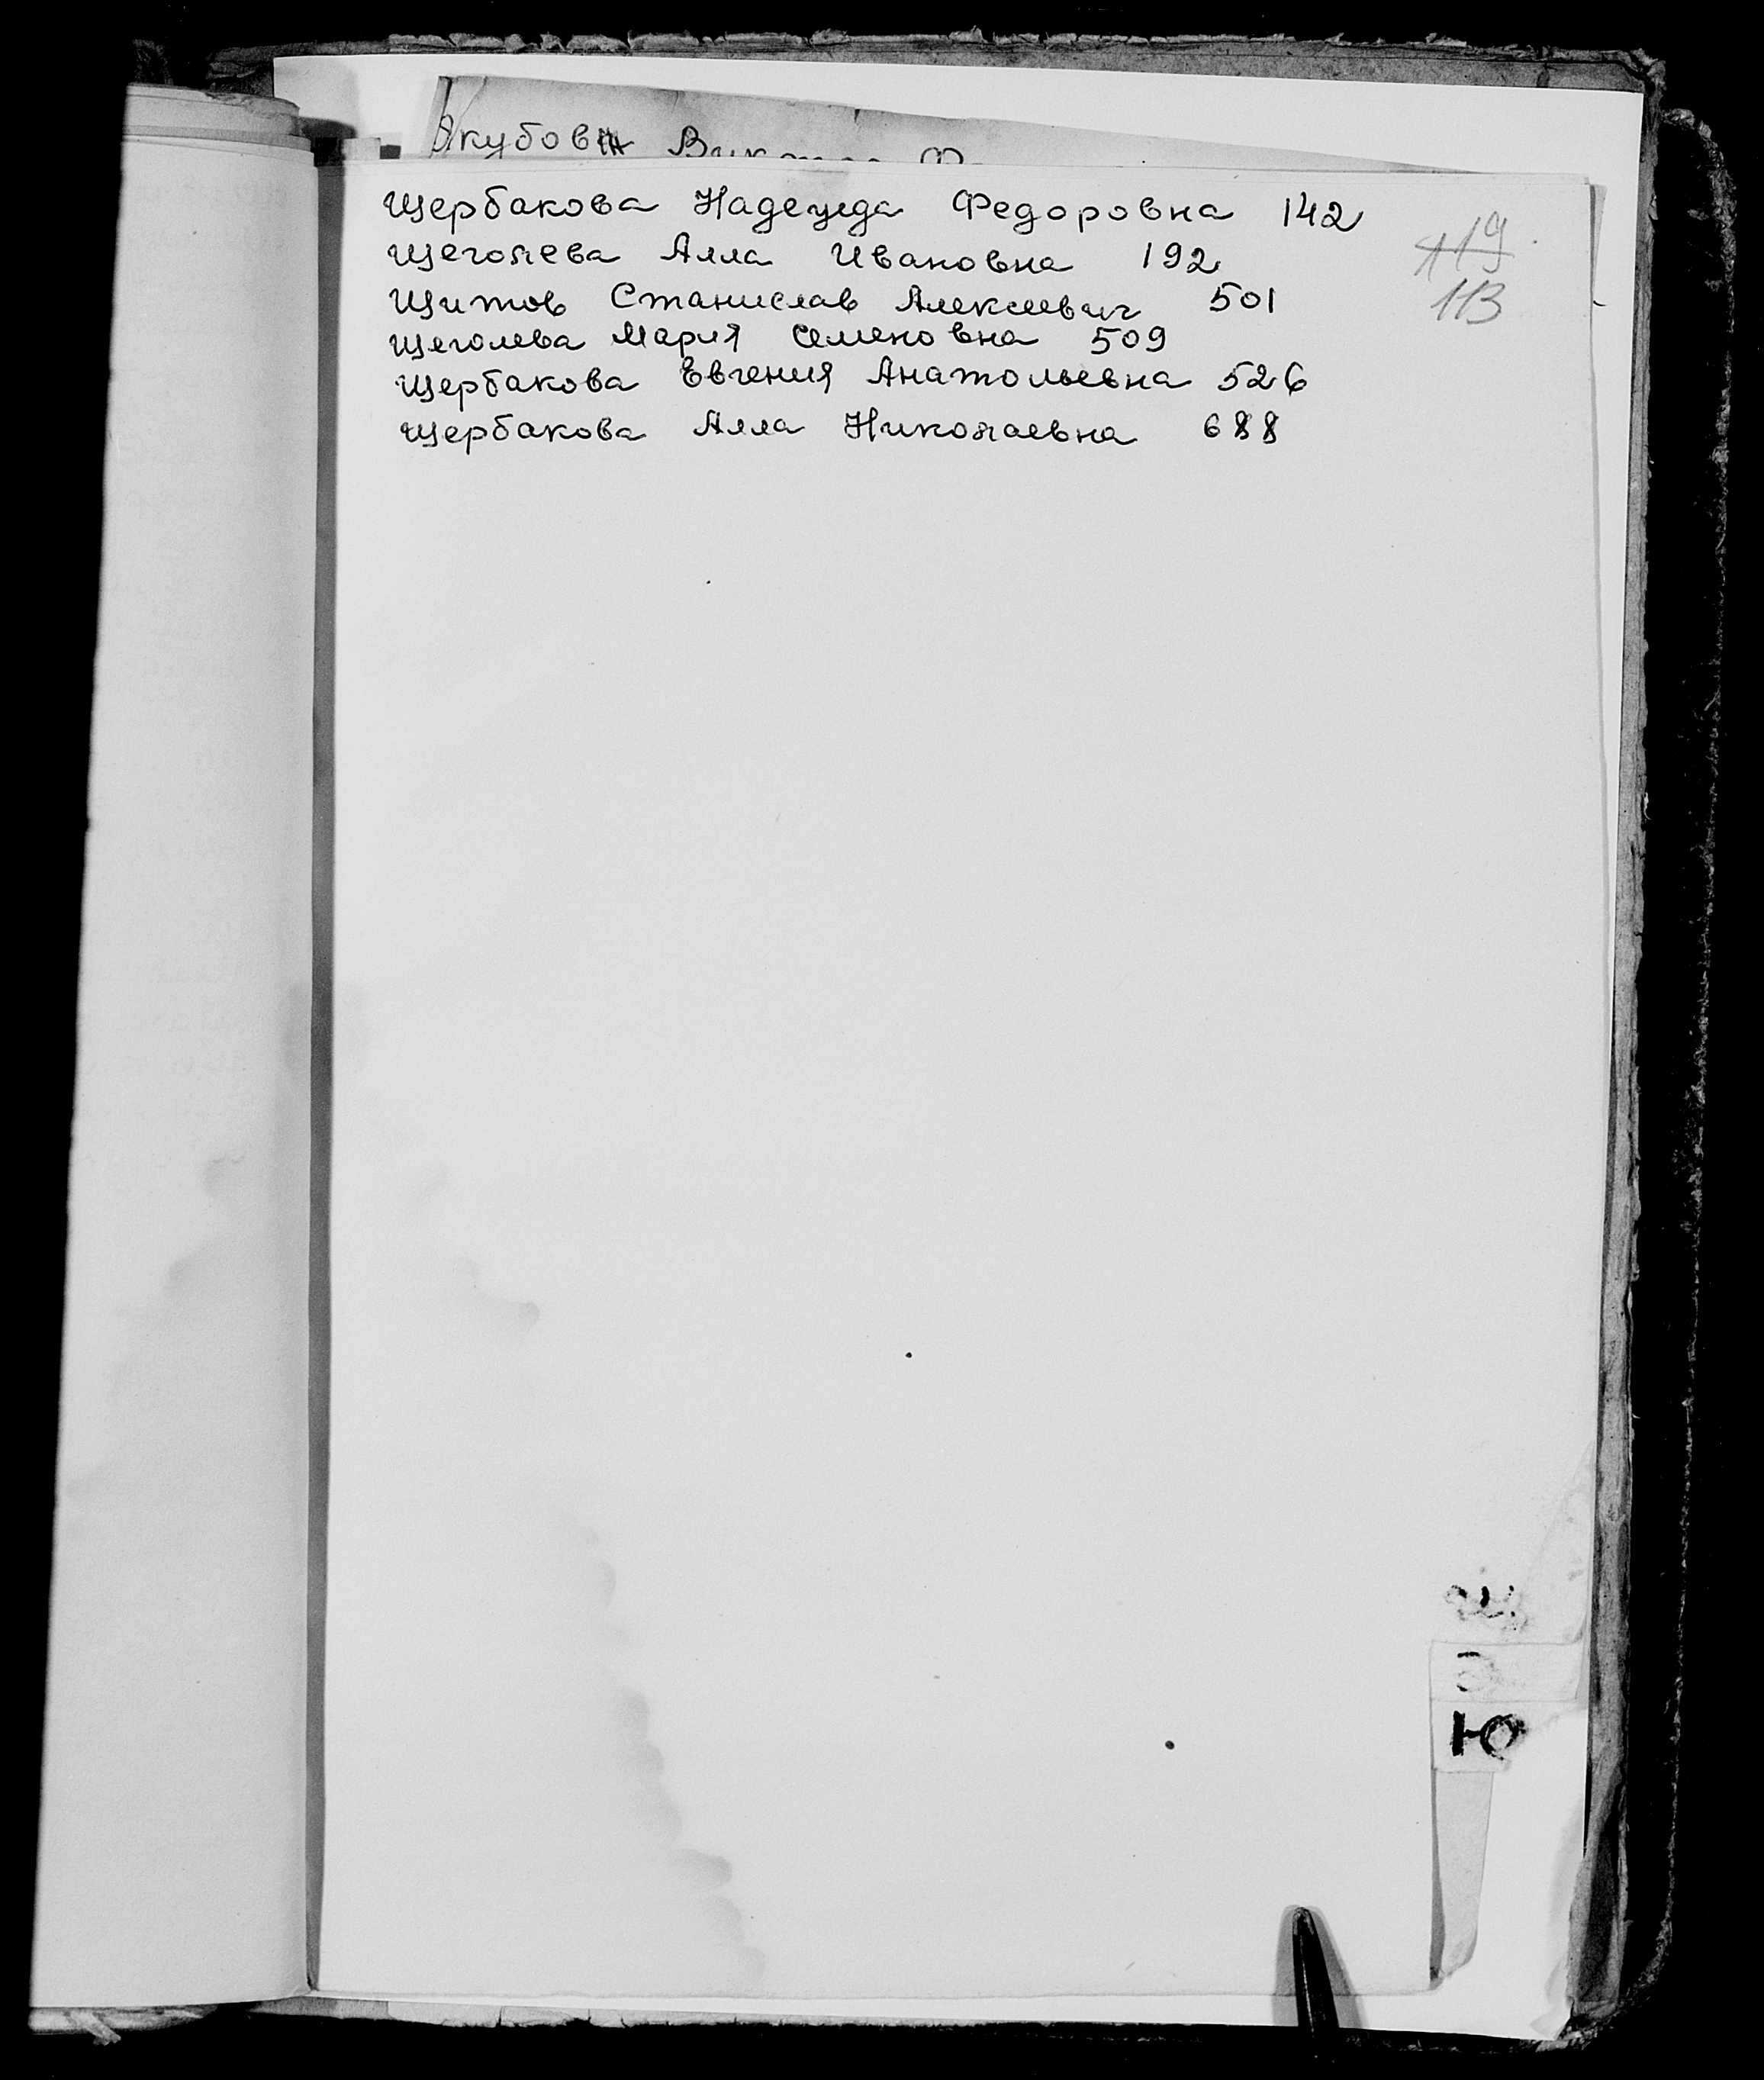 Якубов
Щербакова Надежда Федоровна 142
Щеголева Алла Ивановна 192
119
Щитов Станислав Алексеевич 501
113
Щеголева Мария Семеновна 509
Щербакова Евгения Анатольевна 526
Щербакова Алла Николаевна 688
Э
Ю